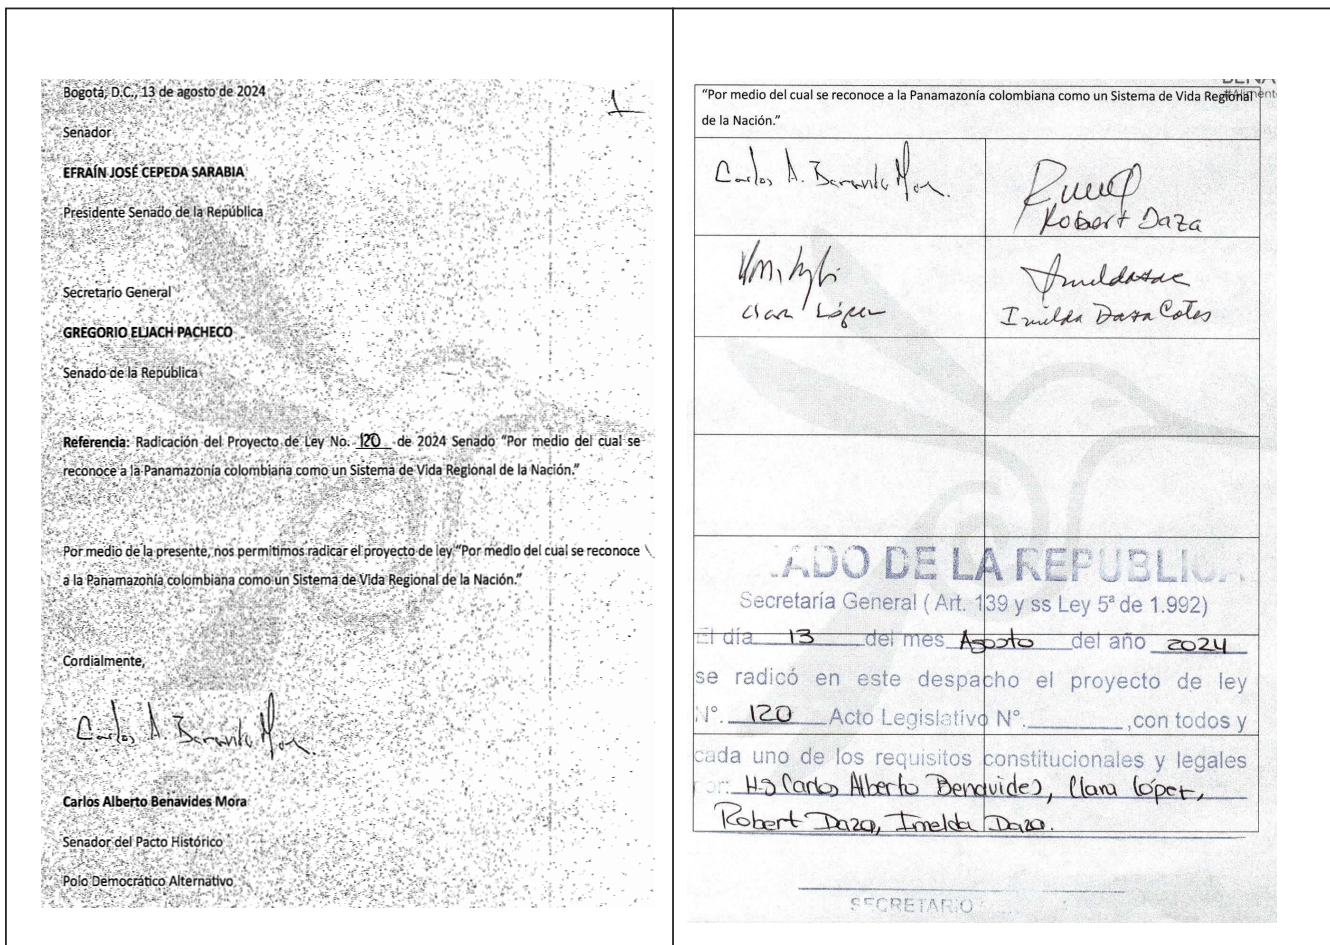 Bogotá, D.C., 13 de agosto de 2024
1
Senador
EFRAÍN JOSÉ CEPEDA SARABIA
Presidente Senado de la República
Secretario General
GREGORIO ELJACH PACHECO
Senado de la República
Referencia: Radicación del Proyecto de Ley No. 120 de 2024 Senado "Por medio del cual se
reconoce a la Panamazonía colombiana como un Sistema de Vida Regional de la Nación."
Por medio de la presente, nos permitimos radicar el proyecto de ley "Por medio del cual se reconoce
a la Panamazonía colombiana como un Sistema de Vida Regional de la Nación."
Cordialmente,
Carlos A. Benavides Mora
Carlos Alberto Benavides Mora
Senador del Pacto Histórico
Polo Democrático Alternativo
"Por medio del cual se reconoce a la Panamazonía colombiana como un Sistema de Vida Regional
de la Nación."
Carlos A. Benavides Mora
Robert Daza
Clara López
Imelda Daza Cotes
ADO DE LA REPUBLICA
Secretaría General ( Art. 139 y ss Ley 5ª de 1.992)
El día 13 del mes Agosto del año 2024
se radicó en este despacho el proyecto de ley
N°. 120 Acto Legislativo N°. ,con todos y
cada uno de los requisitos constitucionales y legales
por: H.S Carlos Alberto Benavides, Clara López,
Robert Daza, Imelda Daza.
SECRETARIO